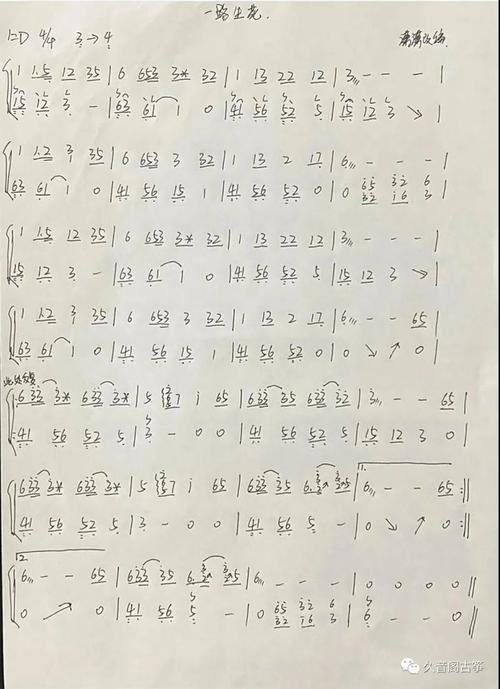 一路生花.
1=D 4/4 3→4
1 1.5 12 35 | 6 653 3* 32 | 1 13 22 12 | 3 - - - |
15 12 3 - | 63 61 1 0 | 41 56 52 5 | 15 12 3 ↘ |
1 1.2 3 35 | 6 653 3 32 | 1 13 2 17 | 6 - - - |
63 61 1 0 | 41 56 15 1 | 41 56 52 0 | 0 65 32 6
32 16 3 |
1 1.5 12 35 | 6 653 3* 32 | 1 13 22 12 | 3 - - - |
15 12 3 - | 63 61 1 0 | 41 56 52 5 | 15 12 3 ↘ |
1 1.2 3 35 | 6 653 3 32 | 1 13 2 17 | 6 - - 65 |
63 61 1 0 | 41 56 15 1 | 41 56 52 0 | 0 ↘ ↗ 0 |
633 3* 633 3* | 5 7 i 65 | 633 35 633 32 | 3 - - 65 |
41 56 52 5 | 3 - 0 0 | 41 56 52 5 | 15 12 3 0 |
1.
633 3* 633 3* | 5 7 i 65 | 633 35 6. 5 | 6 - - 65 :||
41 56 52 5 | 3 - 0 0 | 41 56 5 - | 0 ↘ ↗ 0 :||
2.
6 - - 65 | 633 35 6. 5 | 6 - - - | 0 0 0 0 ||
0 ↗ 0 | 41 56 5 - | 0 65 32 6 | 6 - - - ||
32 16 3
久音阁古筝